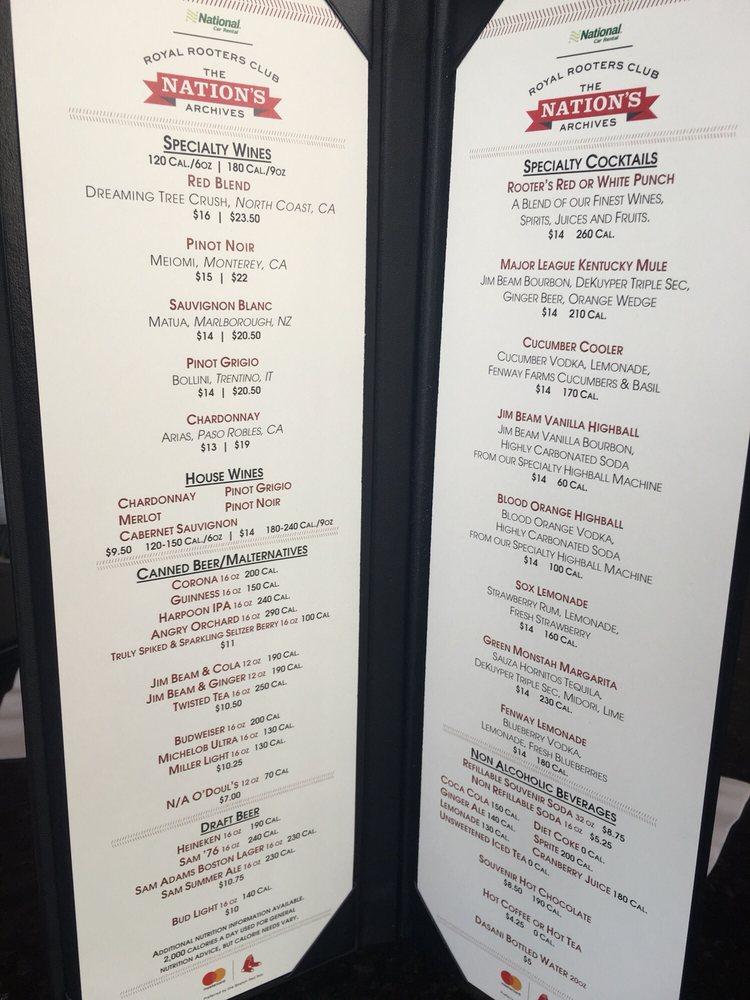 National
Car Rental
ROYAL ROOTERS CLUB
THE
NATION'S
ARCHIVES
SPECIALTY WINES
120 CAL./6OZ | 180 CAL./9OZ
RED BLEND
DREAMING TREE CRUSH, NORTH COAST, CA
$16 | $23.50
PINOT NOIR
MEIOMI, MONTEREY, CA
$15 | $22
SAUVIGNON BLANC
MATUA, MARLBOROUGH, NZ
$14 | $20.50
PINOT GRIGIO
BOLLINI, TRENTINO, IT
$14 | $20.50
CHARDONNAY
ARIAS, PASO ROBLES, CA
$13 | $19
HOUSE WINES
CHARDONNAY PINOT GRIGIO
MERLOT PINOT NOIR
CABERNET SAUVIGNON
$9.50 120-150 CAL./6OZ | $14 180-240 CAL./9OZ
CANNED BEER/MALTERNATIVES
CORONA 16 OZ 200 CAL.
GUINNESS 16 OZ 150 CAL.
HARPOON IPA 16 OZ 240 CAL.
ANGRY ORCHARD 16 OZ 290 CAL.
TRULY SPIKED & SPARKLING SELTZER BERRY 16 OZ 100 CAL
$11
JIM BEAM & COLA 12 OZ 190 CAL.
JIM BEAM & GINGER 12 OZ 190 CAL.
TWISTED TEA 16 OZ 250 CAL.
$10.50
BUDWEISER 16 OZ 200 CAL
MICHELOB ULTRA 16 OZ 130 CAL.
MILLER LIGHT 16 OZ 130 CAL.
$10.25
N/A O'DOUL'S 12 OZ 70 CAL
$7.00
DRAFT BEER
HEINEKEN 16 OZ 190 CAL.
SAM '76 16 OZ 240 CAL.
SAM ADAMS BOSTON LAGER 16 OZ 230 CAL.
SAM SUMMER ALE 16 OZ 230 CAL.
$10.75
BUD LIGHT 16 OZ 140 CAL.
$10
ADDITIONAL NUTRITION INFORMATION AVAILABLE.
2,000 CALORIES A DAY USED FOR GENERAL
NUTRITION ADVICE, BUT CALORIE NEEDS VARY.
National
Car Rental
ROYAL ROOTERS CLUB
THE
NATION'S
ARCHIVES
SPECIALTY COCKTAILS
ROOTER'S RED OR WHITE PUNCH
A BLEND OF OUR FINEST WINES,
SPIRITS, JUICES AND FRUITS.
$14 260 CAL.
MAJOR LEAGUE KENTUCKY MULE
JIM BEAM BOURBON, DEKUYPER TRIPLE SEC,
GINGER BEER, ORANGE WEDGE
$14 210 CAL.
CUCUMBER COOLER
CUCUMBER VODKA, LEMONADE,
FENWAY FARMS CUCUMBERS & BASIL
$14 170 CAL.
JIM BEAM VANILLA HIGHBALL
JIM BEAM VANILLA BOURBON,
HIGHLY CARBONATED SODA
FROM OUR SPECIALTY HIGHBALL MACHINE
$14 60 CAL.
BLOOD ORANGE HIGHBALL
BLOOD ORANGE VODKA,
HIGHLY CARBONATED SODA
FROM OUR SPECIALTY HIGHBALL MACHINE
$14 100 CAL.
SOX LEMONADE
STRAWBERRY RUM, LEMONADE,
FRESH STRAWBERRY
$14 160 CAL.
GREEN MONSTAH MARGARITA
SAUZA HORNITOS TEQUILA,
DEKUYPER TRIPLE SEC, MIDORI, LIME
$14 230 CAL.
FENWAY LEMONADE
BLUEBERRY VODKA,
LEMONADE, FRESH BLUEBERRIES
$14 180 CAL.
NON ALCOHOLIC BEVERAGES
REFILLABLE SOUVENIR SODA 32 OZ $8.75
NON REFILLABLE SODA 16 OZ $5.25
COCA COLA 150 CAL. DIET COKE 0 CAL.
GINGER ALE 140 CAL. SPRITE 200 CAL.
LEMONADE 130 CAL. CRANBERRY JUICE 180 CAL.
UNSWEETENED ICED TEA 0 CAL.
SOUVENIR HOT CHOCOLATE
$8.50 190 CAL.
HOT COFFEE OR HOT TEA
$4.25 0 CAL.
DASANI BOTTLED WATER 20OZ
$5